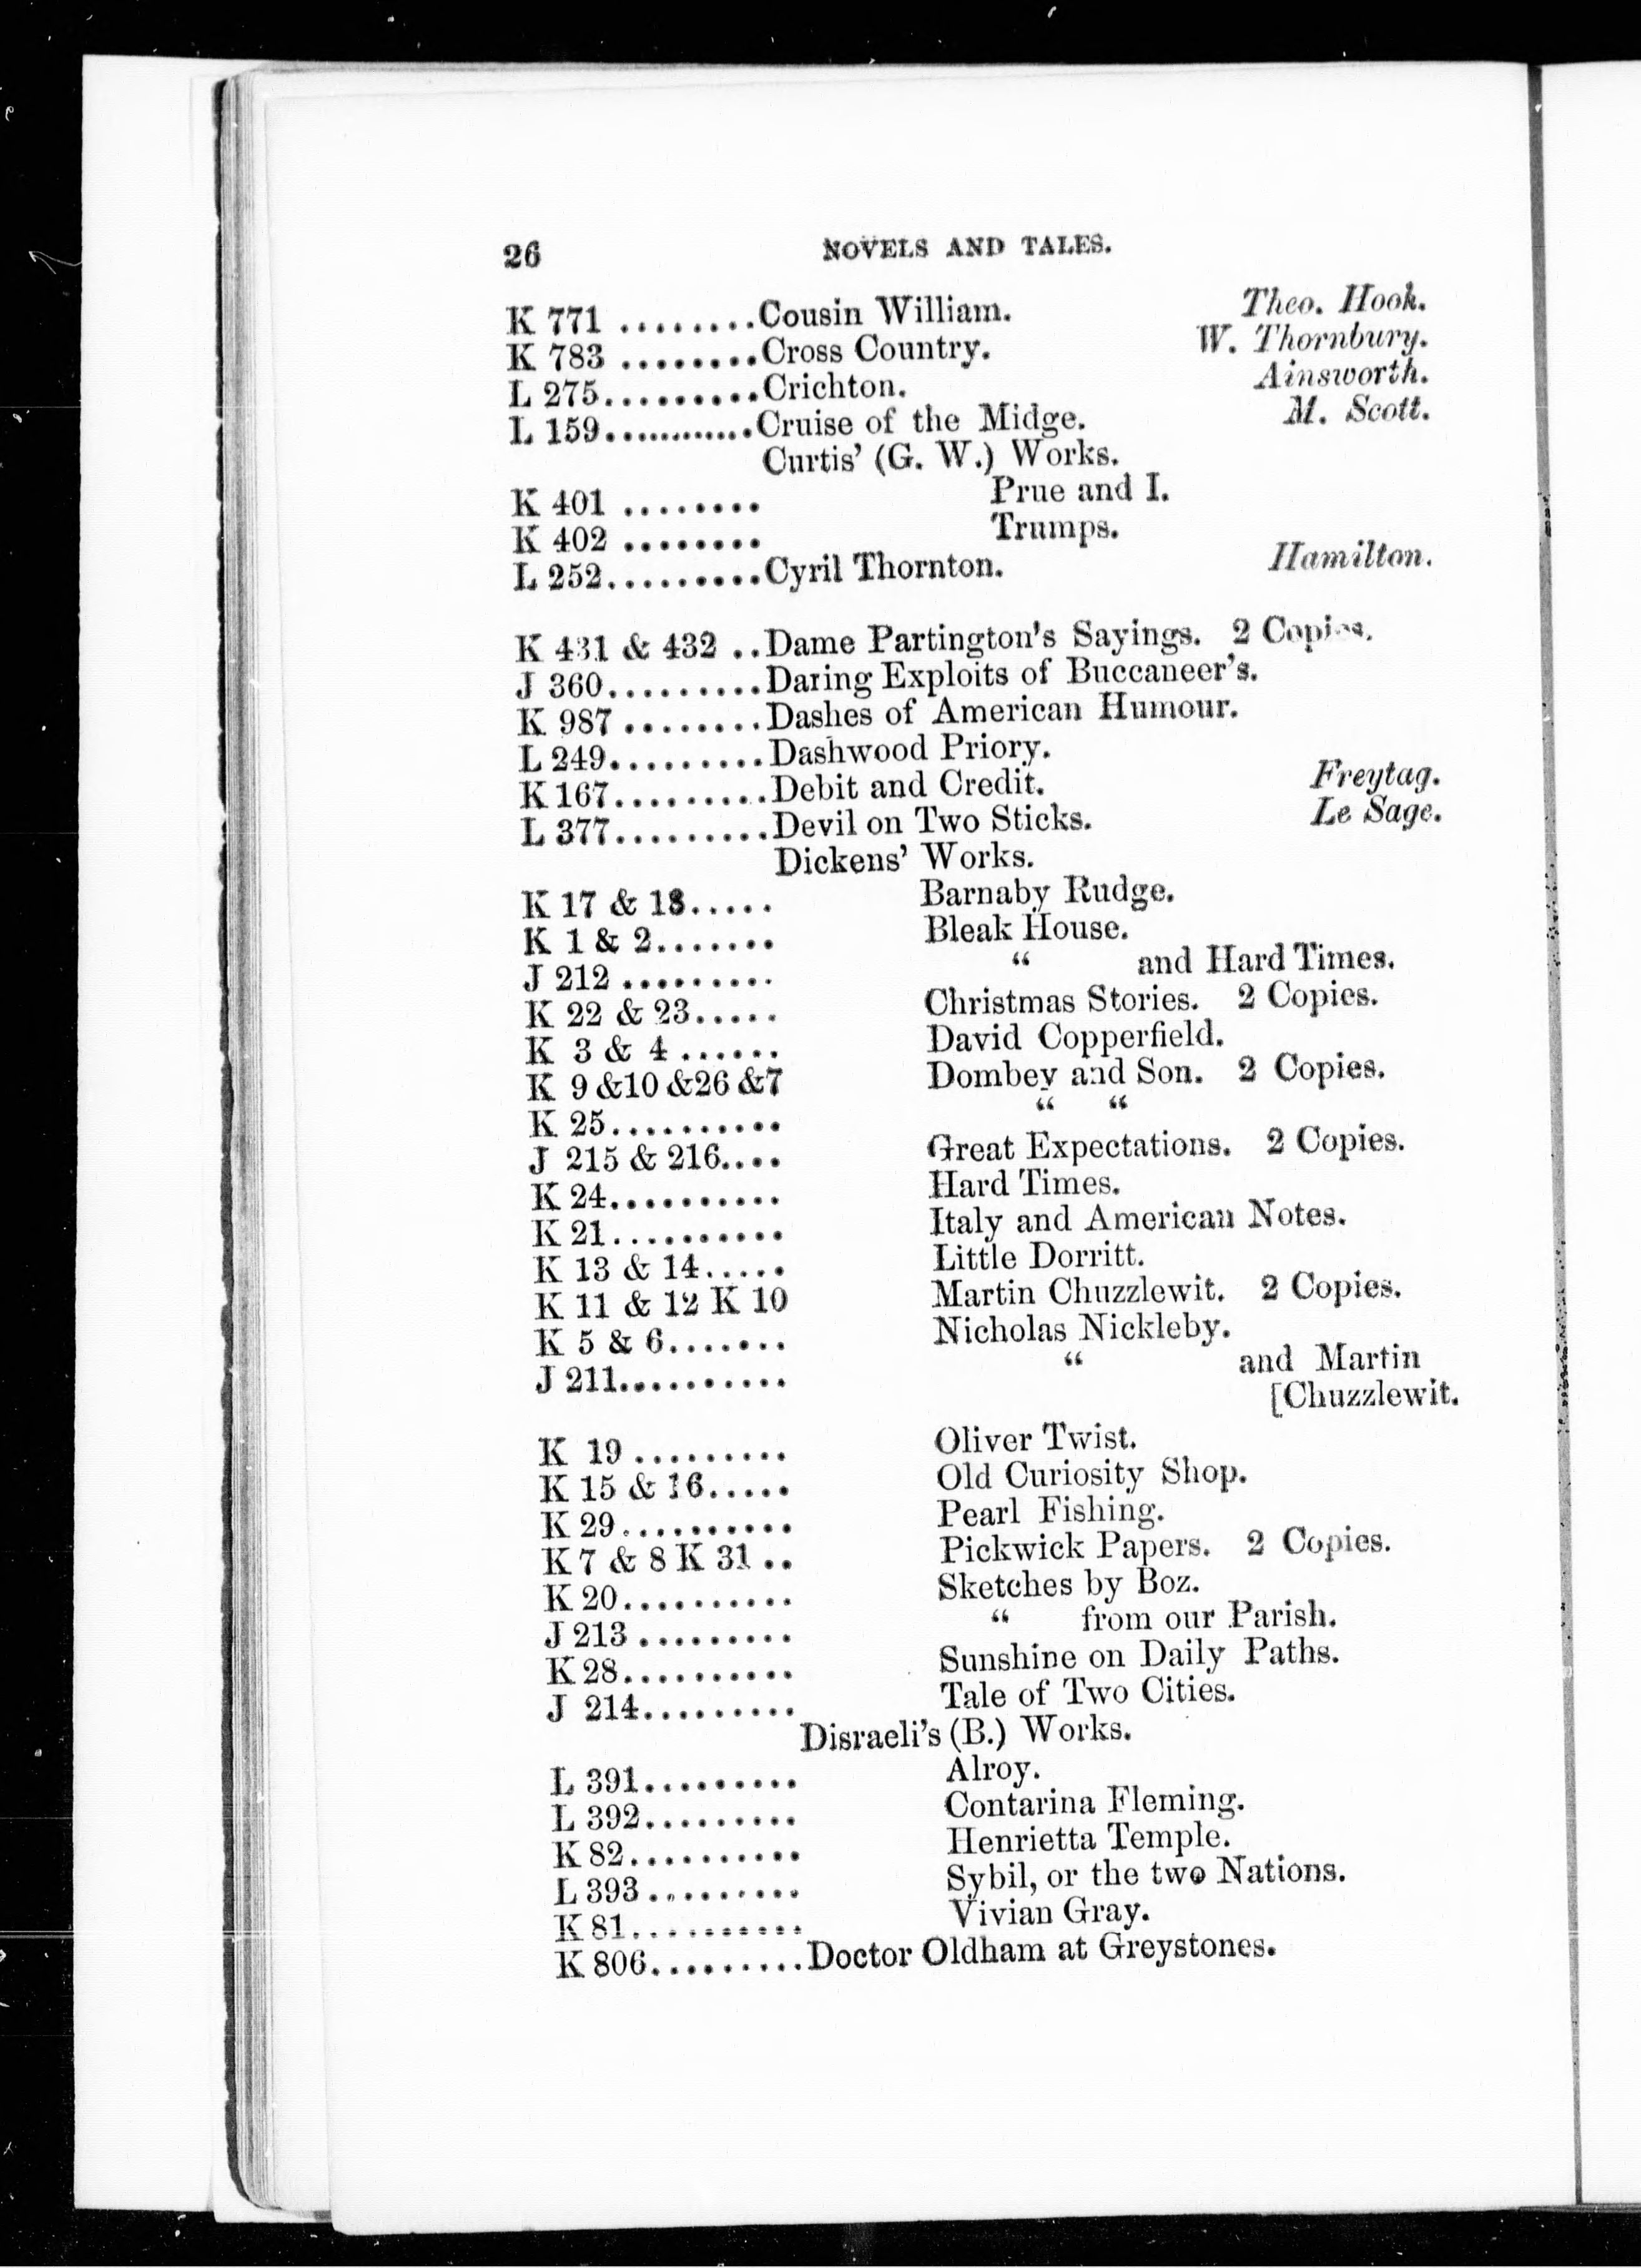 26 NOVELS AND TALES.
K 771 ........Cousin William. Theo. Hook.
K 783 ........Cross Country. W. Thornbury.
L 275.........Crichton. Ainsworth.
L 159............Cruise of the Midge. M. Scott.
Curtis' (G. W.) Works.
K 401 ........ Prue and I.
K 402 ........ Trumps.
L 252.........Cyril Thornton. Hamilton.
K 431 & 432 ..Dame Partington's Sayings. 2 Copies.
J 360.........Daring Exploits of Buccaneer's.
K 987 ........Dashes of American Humour.
L 249.........Dashwood Priory.
K 167.........Debit and Credit. Freytag.
L 377.........Devil on Two Sticks. Le Sage.
Dickens' Works.
K 17 & 18..... Barnaby Rudge.
K 1 & 2....... Bleak House.
J 212 ......... “ and Hard Times.
K 22 & 23..... Christmas Stories. 2 Copies.
K 3 & 4 ...... David Copperfield.
K 9 &10 &26 &7 Dombey and Son. 2 Copies.
K 25.......... “ “
J 215 & 216.... Great Expectations. 2 Copies.
K 24.......... Hard Times.
K 21.......... Italy and American Notes.
K 13 & 14..... Little Dorritt.
K 11 & 12 K 10 Martin Chuzzlewit. 2 Copies.
K 5 & 6....... Nicholas Nickleby.
J 211.......... “ and Martin
[Chuzzlewit.
K 19 ......... Oliver Twist.
K 15 & 16..... Old Curiosity Shop.
K 29.......... Pearl Fishing.
K 7 & 8 K 31 .. Pickwick Papers. 2 Copies.
K 20.......... Sketches by Boz.
J 213 ......... “ from our Parish.
K 28.......... Sunshine on Daily Paths.
J 214......... Tale of Two Cities.
Disraeli's (B.) Works.
L 391......... Alroy.
L 392......... Contarina Fleming.
K 82.......... Henrietta Temple.
L 393 ......... Sybil, or the two Nations.
K 81.......... Vivian Gray.
K 806.........Doctor Oldham at Greystones.